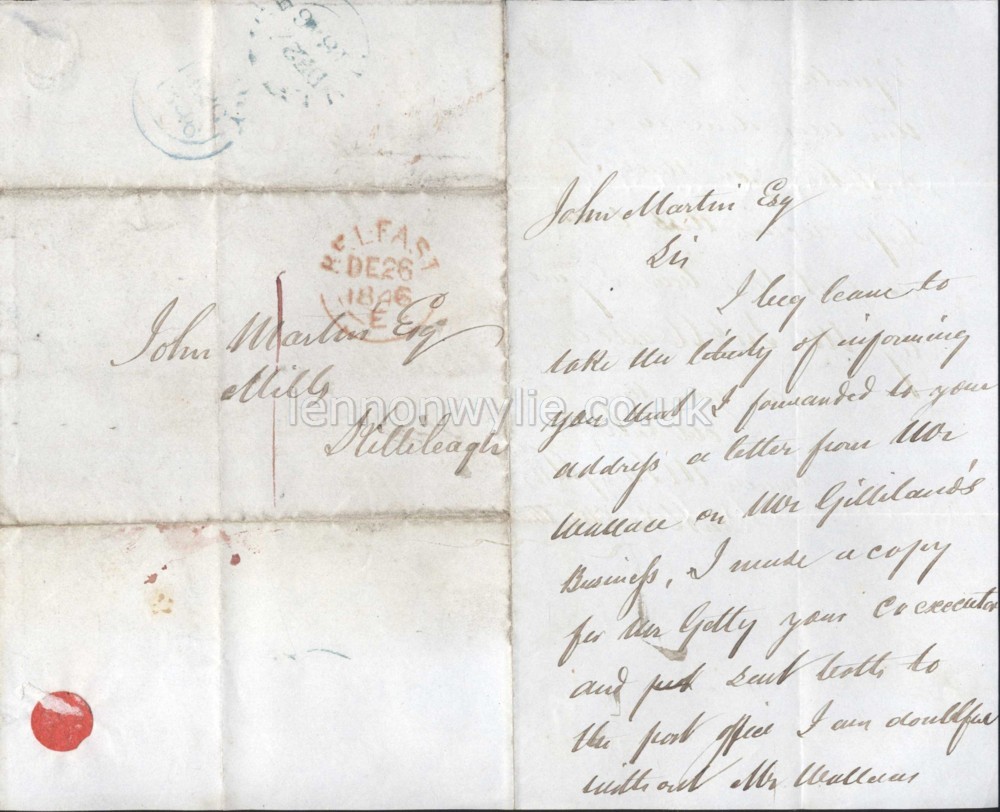 BELFAST
DE 26
1846
E
John Martin Esqr
Mills
Killileagh
lennonwylie.co.uk
John Martin Esq
Sir
I beg leave to
take the liberty of informing
you that I forwarded to your
address a letter from Mr
Wallace on Mr Gilliland's
Business, I made a copy
for Mr Getty your Co executor
and sent both to
the post office I am doubtful
without Mr Wallaces